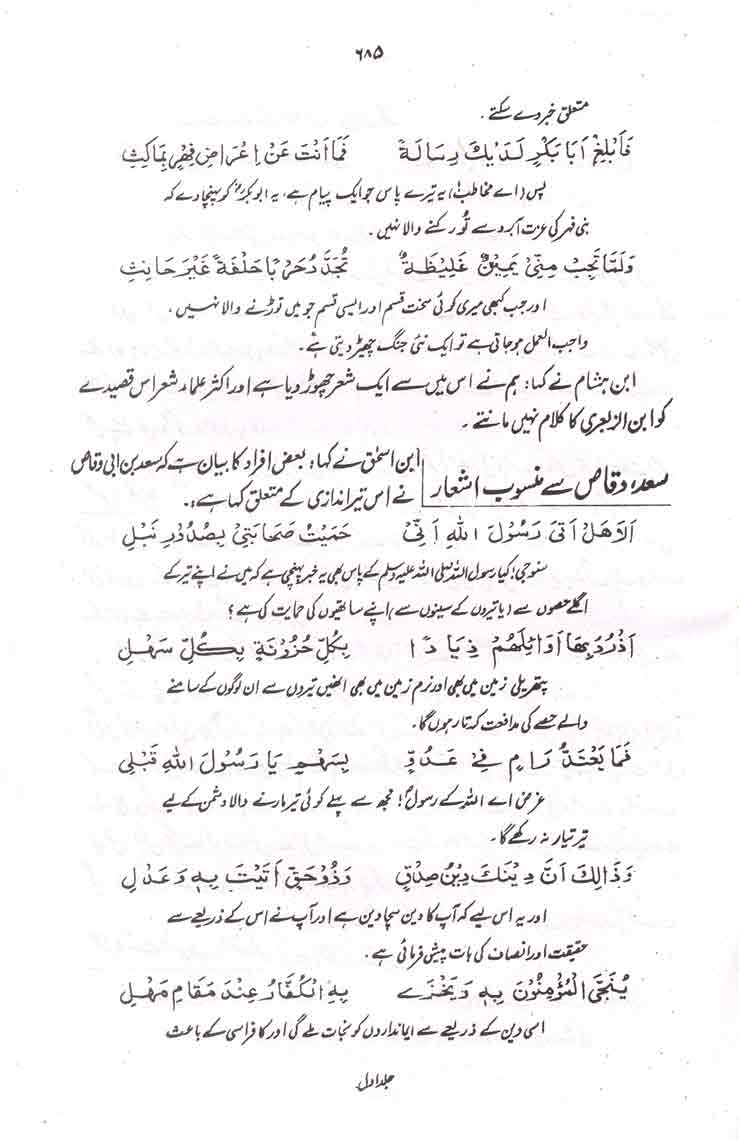 ۶۸۵
متعلق خبر دے سکتے۔
فَأَبْلِغْ أَبَا بَكْرٍ لَدَيْكَ رِسَالَةً فَمَا أَنْتَ عَنْ إِعْرَاضِ فِهْرٍ بِمَاكِثِ
پس (اے مخاطب!) یہ تیرے پاس جو ایک پیام ہے، یہ ابوبکرؓ کو پہنچا دے کہ
بنی فہر کی عزت آبرو سے تُو رکنے والا نہیں۔
وَلَمَّا تَجِبْ مِنِّيْ يَمِيْنٌ غَلِيْظَةٌ تُجَدِّدُ حَرْبًا حَلْفَةً غَيْرَ حَانِثِ
اور جب کبھی میری کوئی سخت قسم اور ایسی قسم جو میں توڑنے والا نہیں،
واجب العمل ہو جاتی ہے تو ایک نئی جنگ چھیڑ دیتی ہے۔
ابن ہشام نے کہا: ہم نے اس میں سے ایک شعر چھوڑ دیا ہے اور اکثر علماء شعر اس قصیدے
کو ابن الزبعری کا کلام نہیں مانتے۔
سعدؓ وقاص سے منسوب اشعار
ابن اسحٰق نے کہا: بعض افراد کا بیان ہے کہ سعد بن ابی وقاص
نے اس تیر اندازی کے متعلق کہا ہے:۔
اَلَا هَلْ اَتٰى رَسُوْلَ اللهِ اَنِّيْ حَمَيْتُ صَحَابَتِيْ بِصُدُوْرِ نَبْلِ
سنو جی! کیا رسول اللہ صلی اللہ علیہ وسلم کے پاس بھی یہ خبر پہنچی ہے کہ میں نے اپنے تیر کے
اگلے حصوں سے (یا تیروں کے سینوں سے) اپنے ساتھیوں کی حمایت کی ہے؟
اَذُوْدُ بِهَا اَوَائِلَهُمْ ذِيَادًا بِكُلِّ حُزُوْنَةٍ وَبِكُلِّ سَهْلِ
پتھریلی زمین میں بھی اور نرم زمین میں بھی انھیں تیروں سے ان لوگوں کے سامنے
والے حصے کی مدافعت کرتا رہوں گا۔
فَمَا يَعْتَدُّ رَامٍ فِيْ عَدُوٍّ بِسَهْمٍ يَا رَسُوْلَ اللهِ قَبْلِيْ
غرض اے اللہ کے رسولؐ! مجھ سے پہلے کوئی تیر مارنے والا دشمن کے لیے
تیر تیار نہ رکھے گا۔
وَذَالِكَ اَنَّ دِيْنَكَ دِيْنُ صِدْقٍ وَذُوْحَقٍّ اَتَيْتَ بِهٖ وَعَدْلِ
اور یہ اس لیے کہ آپ کا دین سچا دین ہے اور آپ نے اس کے ذریعے سے
حقیقت اور انصاف کی بات پیش فرمائی ہے۔
يُنَجَّى الْمُؤْمِنُوْنَ بِهٖ وَيُخْزٰے بِهِ الْكُفَّارُ عِنْدَ مَقَامِ مَهْلِ
اسی دین کے ذریعے سے ایمانداروں کو نجات ملے گی اور کافر اسی کے باعث
جلد اول